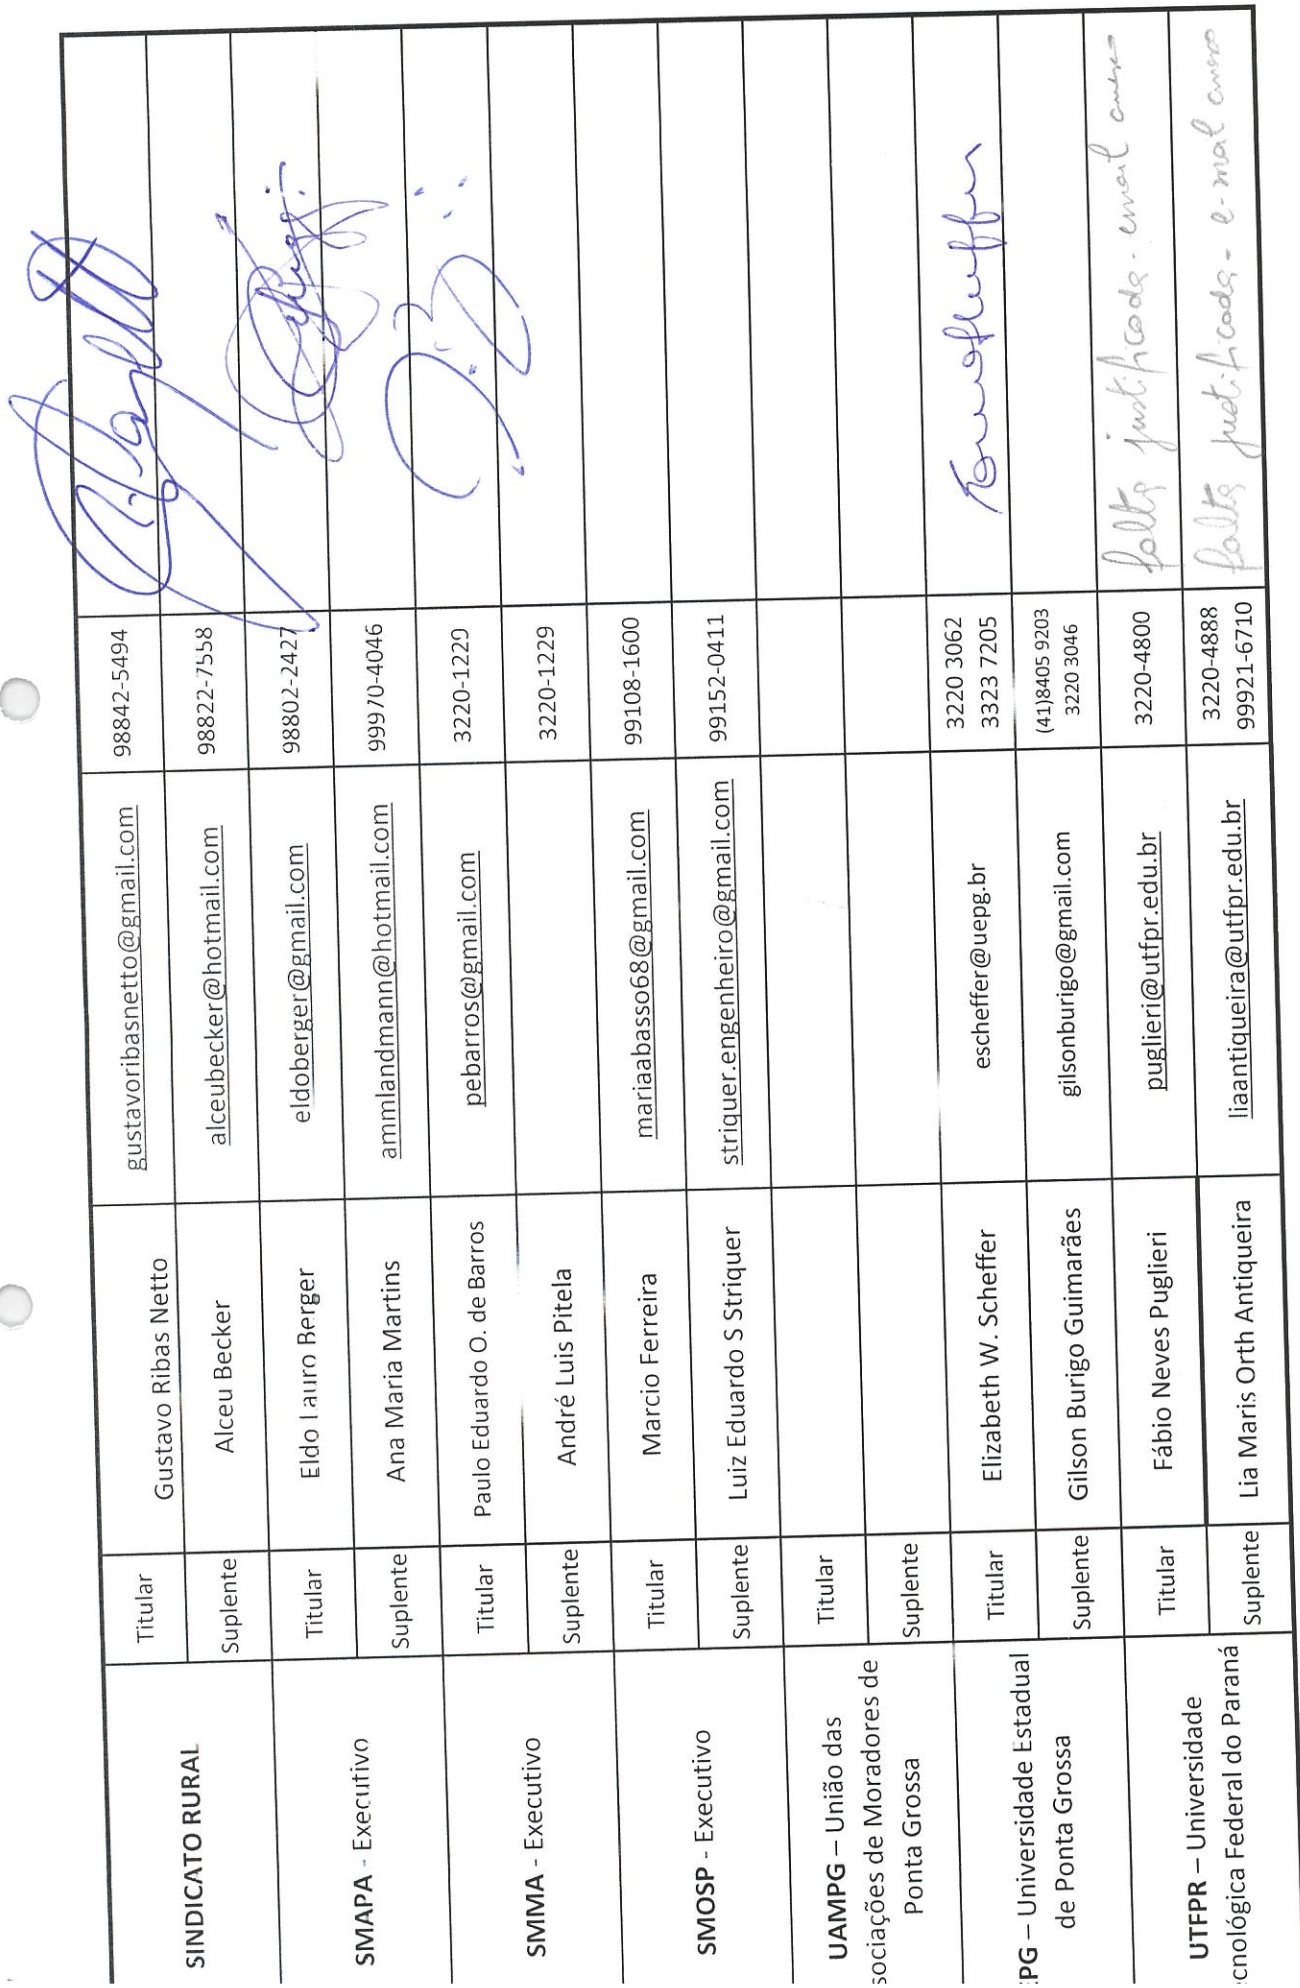 SINDICATO RURAL
Titular
Gustavo Ribas Netto
gustavoribasnetto@gmail.com
98842-5494
Suplente
Alceu Becker
alceubecker@hotmail.com
98822-7558
SMAPA - Executivo
Titular
Eldo Lauro Berger
eldoberger@gmail.com
98802-2427
Suplente
Ana Maria Martins
ammlandmann@hotmail.com
99970-4046
SMMA - Executivo
Titular
Paulo Eduardo O. de Barros
pebarros@gmail.com
3220-1229
Suplente
André Luis Pitela
3220-1229
SMOSP - Executivo
Titular
Marcio Ferreira
mariaabasso68@gmail.com
99108-1600
Suplente
Luiz Eduardo S Striquer
striquer.engenheiro@gmail.com
99152-0411
UAMPG – União das
sociações de Moradores de
Ponta Grossa
Titular
Suplente
EPG – Universidade Estadual
de Ponta Grossa
Titular
Elizabeth W. Scheffer
escheffer@uepg.br
3220 3062
3323 7205
Suplente
Gilson Burigo Guimarães
gilsonburigo@gmail.com
(41)8405 9203
3220 3046
UTFPR – Universidade
ecnológica Federal do Paraná
Titular
Fábio Neves Puglieri
puglieri@utfpr.edu.br
3220-4800
falta justificada - email anexo
Suplente
Lia Maris Orth Antiqueira
liaantiqueira@utfpr.edu.br
3220-4888
99921-6710
falta justificada - e-mal anexo